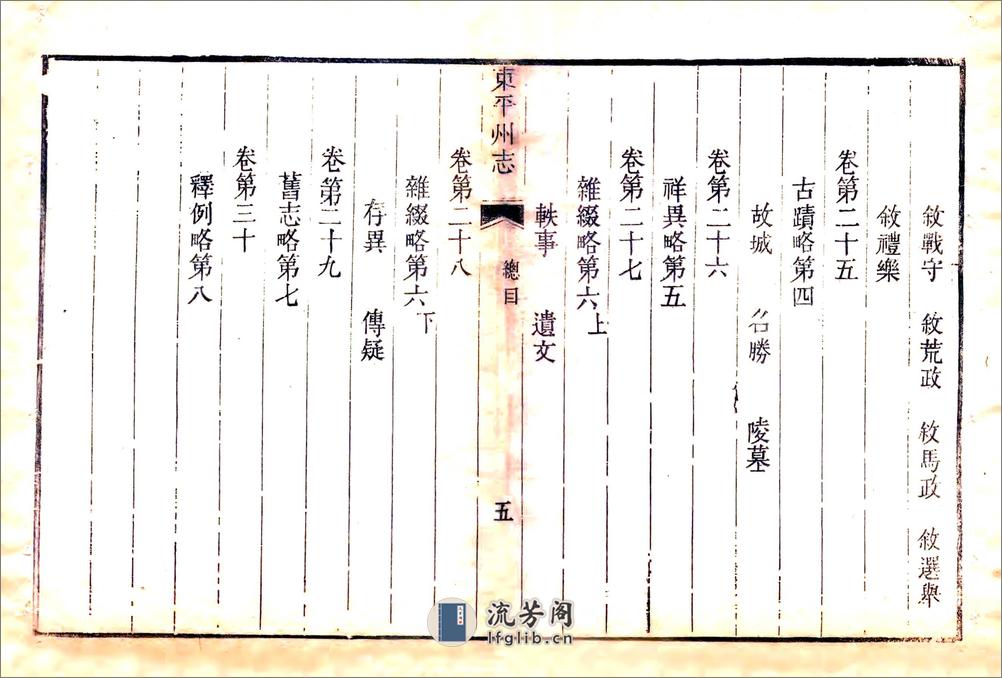 敘戰守　敘荒政　敘馬政　敘選舉
敘禮樂
卷第二十五
古蹟略第四
故城　名勝　陵墓
卷第二十六
祥異略第五
卷第二十七
雜綴略第六上
軼事　遺文
東平州志　總目　五
卷第二十八
雜綴略第六下
存異　傳疑
卷第二十九
舊志略第七
卷第三十
釋例略第八
流芳阁
lfglib.cn